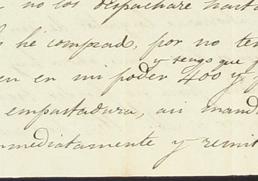 no los despachare hasta
he comprado, por no ten
y tengo que
en en mi poder 400 y
empastadura, asi mand
nmediatamente y remit